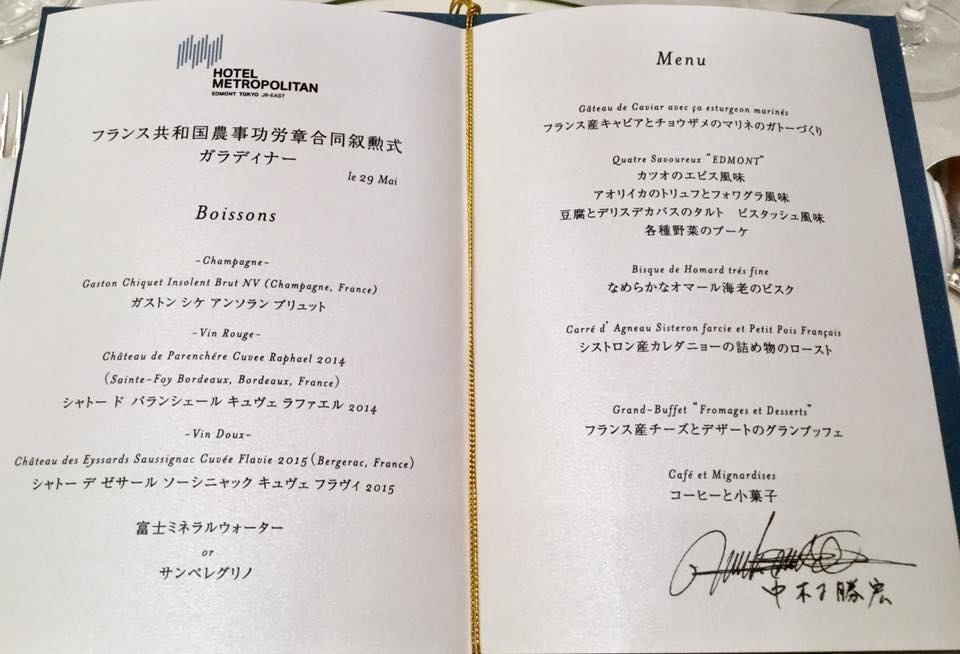 HOTEL
METROPOLITAN
EDMONT TOKYO JR-EAST
フランス共和国農事功労章合同叙勲式
ガラディナー
le 29 Mai
Boissons
-Champagne-
Gaston Chiquet Insolent Brut NV (Champagne, France)
ガストン シケ アンソラン ブリュット
-Vin Rouge-
Château de Parenchére Cuvee Raphael 2014
(Sainte-Foy Bordeaux, Bordeaux, France)
シャトー ド パランシェール キュヴェ ラファエル 2014
-Vin Doux-
Château des Eyssards Saussignac Cuvée Flavie 2015 (Bergerac, France)
シャトー デ ゼサール ソーシニャック キュヴェ フラヴィ 2015
富士ミネラルウォーター
or
サンペレグリノ
Menu
Gâteau de Caviar avec ça esturgeon marinés
フランス産キャビアとチョウザメのマリネのガトーづくり
Quatre Savoureux "EDMONT"
カツオのエピス風味
アオリイカのトリュフとフォワグラ風味
豆腐とデリスデカバスのタルト ピスタッシュ風味
各種野菜のブーケ
Bisque de Homard trés fine
なめらかなオマール海老のビスク
Carré d' Agneau Sisteron farcie et Petit Pois Français
シストロン産カレダニョーの詰め物のロースト
Grand-Buffet "Fromages et Desserts"
フランス産チーズとデザートのグランブッフェ
Café et Mignardises
コーヒーと小菓子
中村勝宏